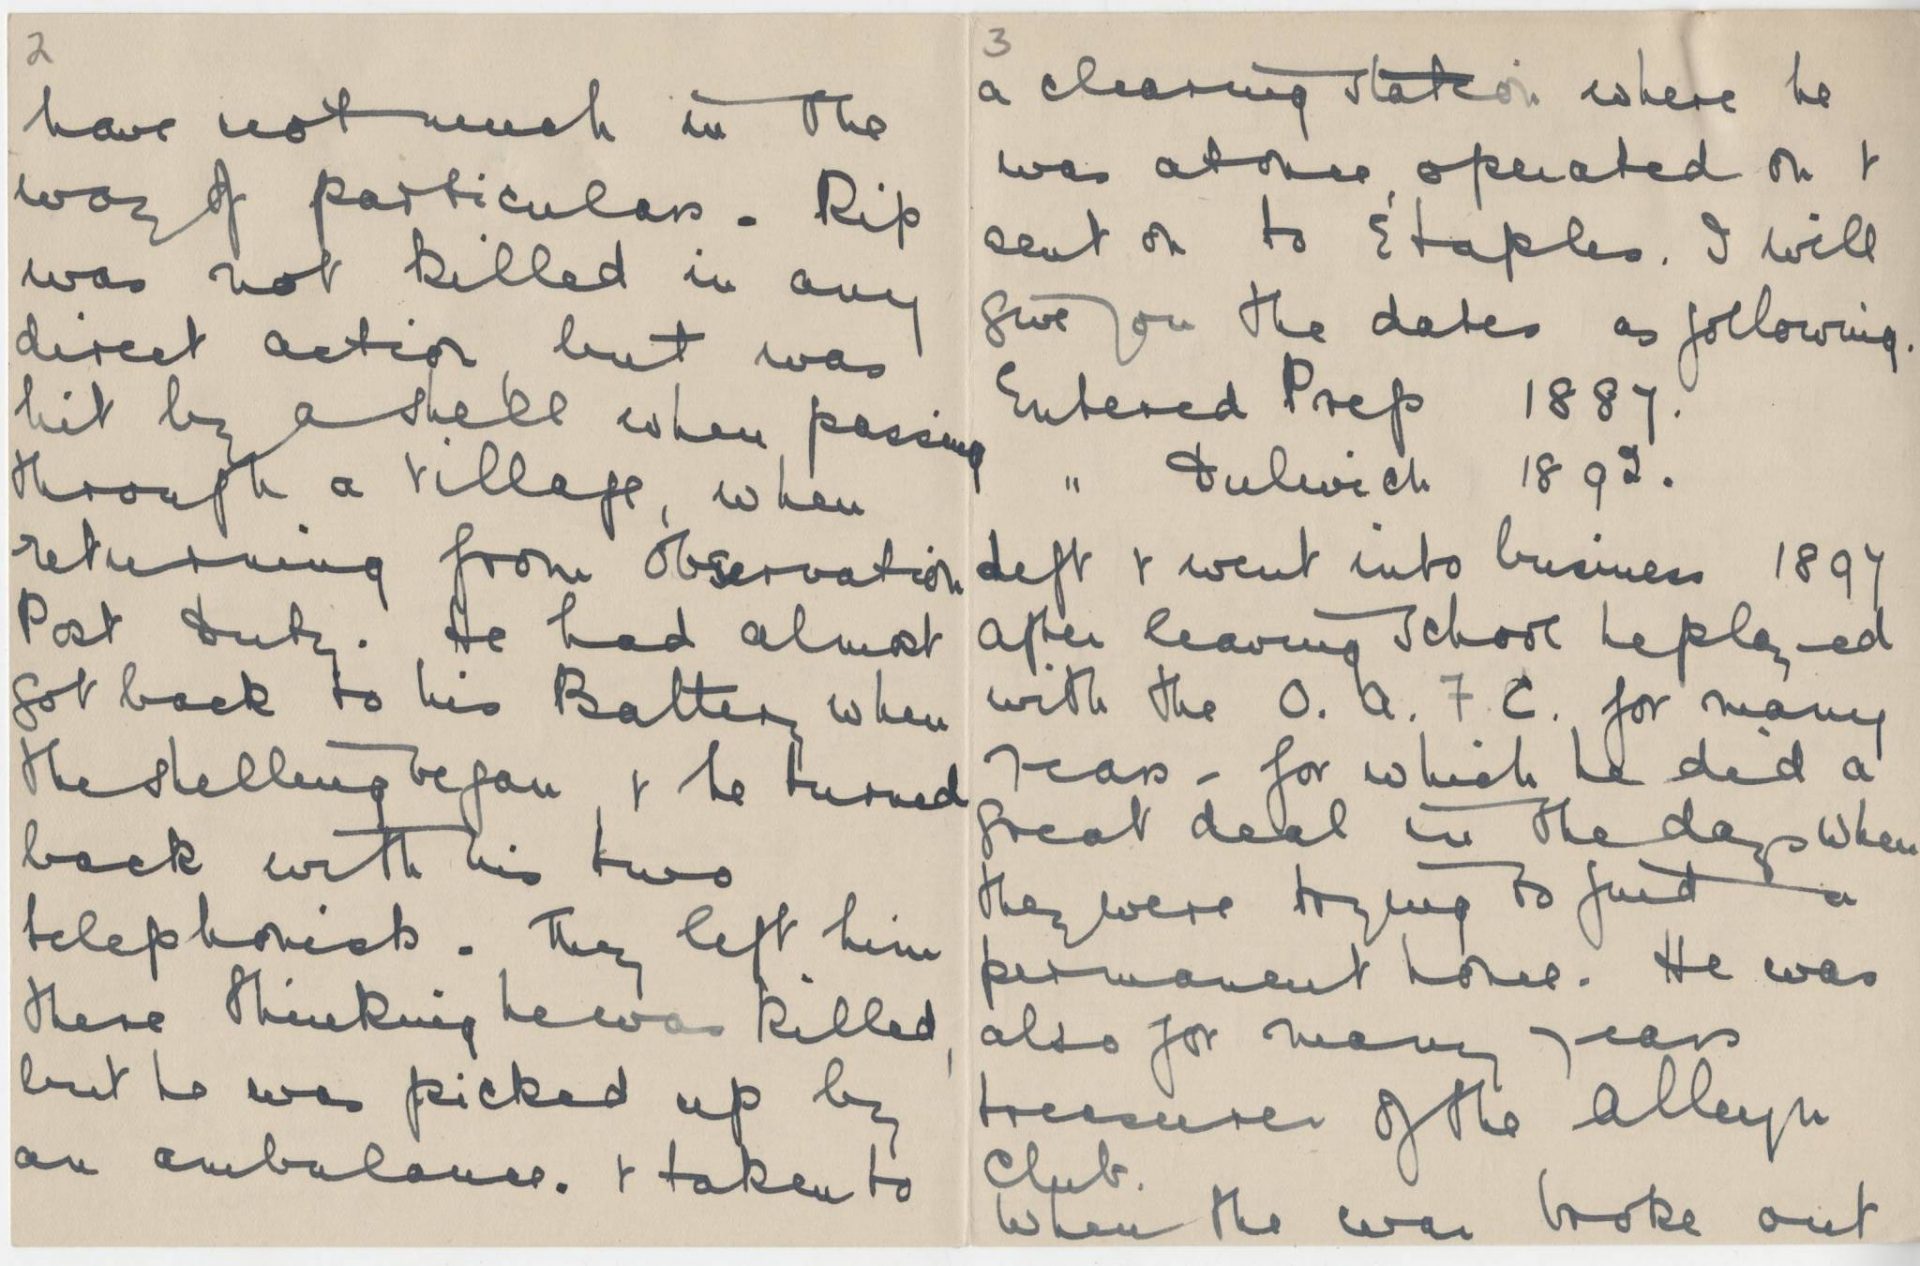 2
have not much in the
way of particulars - Rip
was not killed in any
direct action, but was
hit by a shell when passing
through a village, when
returning from Observation
Post Duty. He had almost
got back to his Battery when
the shelling began, & he turned
back with his two
telephonists - They left him
there thinking he was killed,
but he was picked up by
an ambulance. & taken to
3
a clearing station where he
was at once, operated on &
sent on to Étaples. I will
give you the dates as following.
Entered Prep 1887.
" Dulwich 1892.
Left & went into business 1897
After leaving School he played
with the O. A. F. C. for many
years - for which he did a
great deal in the days when
they were trying to find a
permanent home. He was
also for many years
treasurer of the Alleyn
Club.
When the war broke out